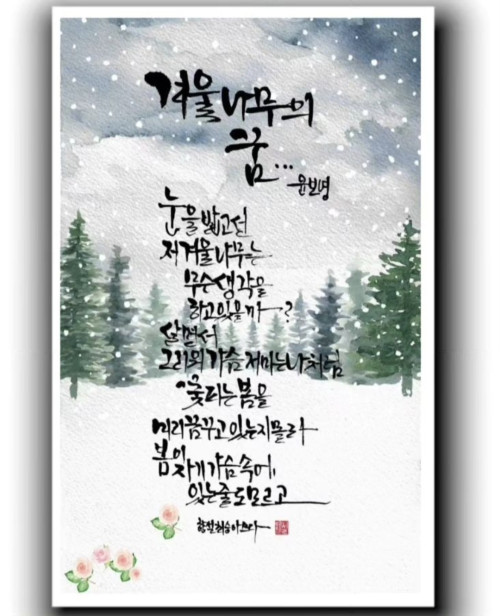 겨울나무의
꿈...
윤보영
눈을 밟고 선
저 겨울나무는
무슨 생각을
하고 있을까?
살면서
그리워 가슴 저미는 나처럼
꽃 피는 봄을
미리 꿈꾸고 있는지 몰라
봄이
자기 가슴속에
있는 줄도 모르고
쓰다